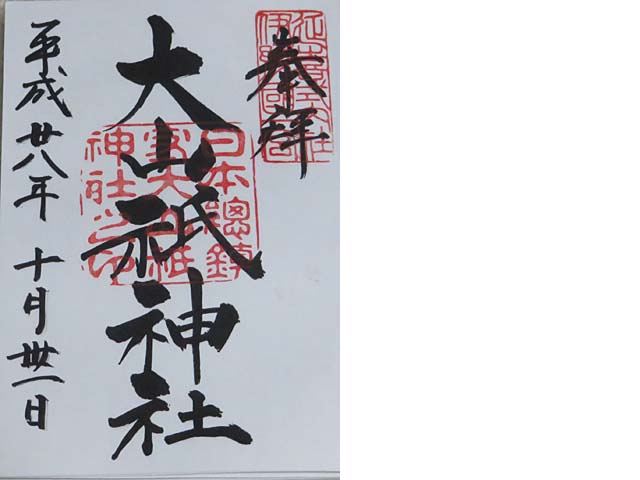 奉拝
大山祇神社
平成廿八年 十月卅一日
日本總鎮
神社之印